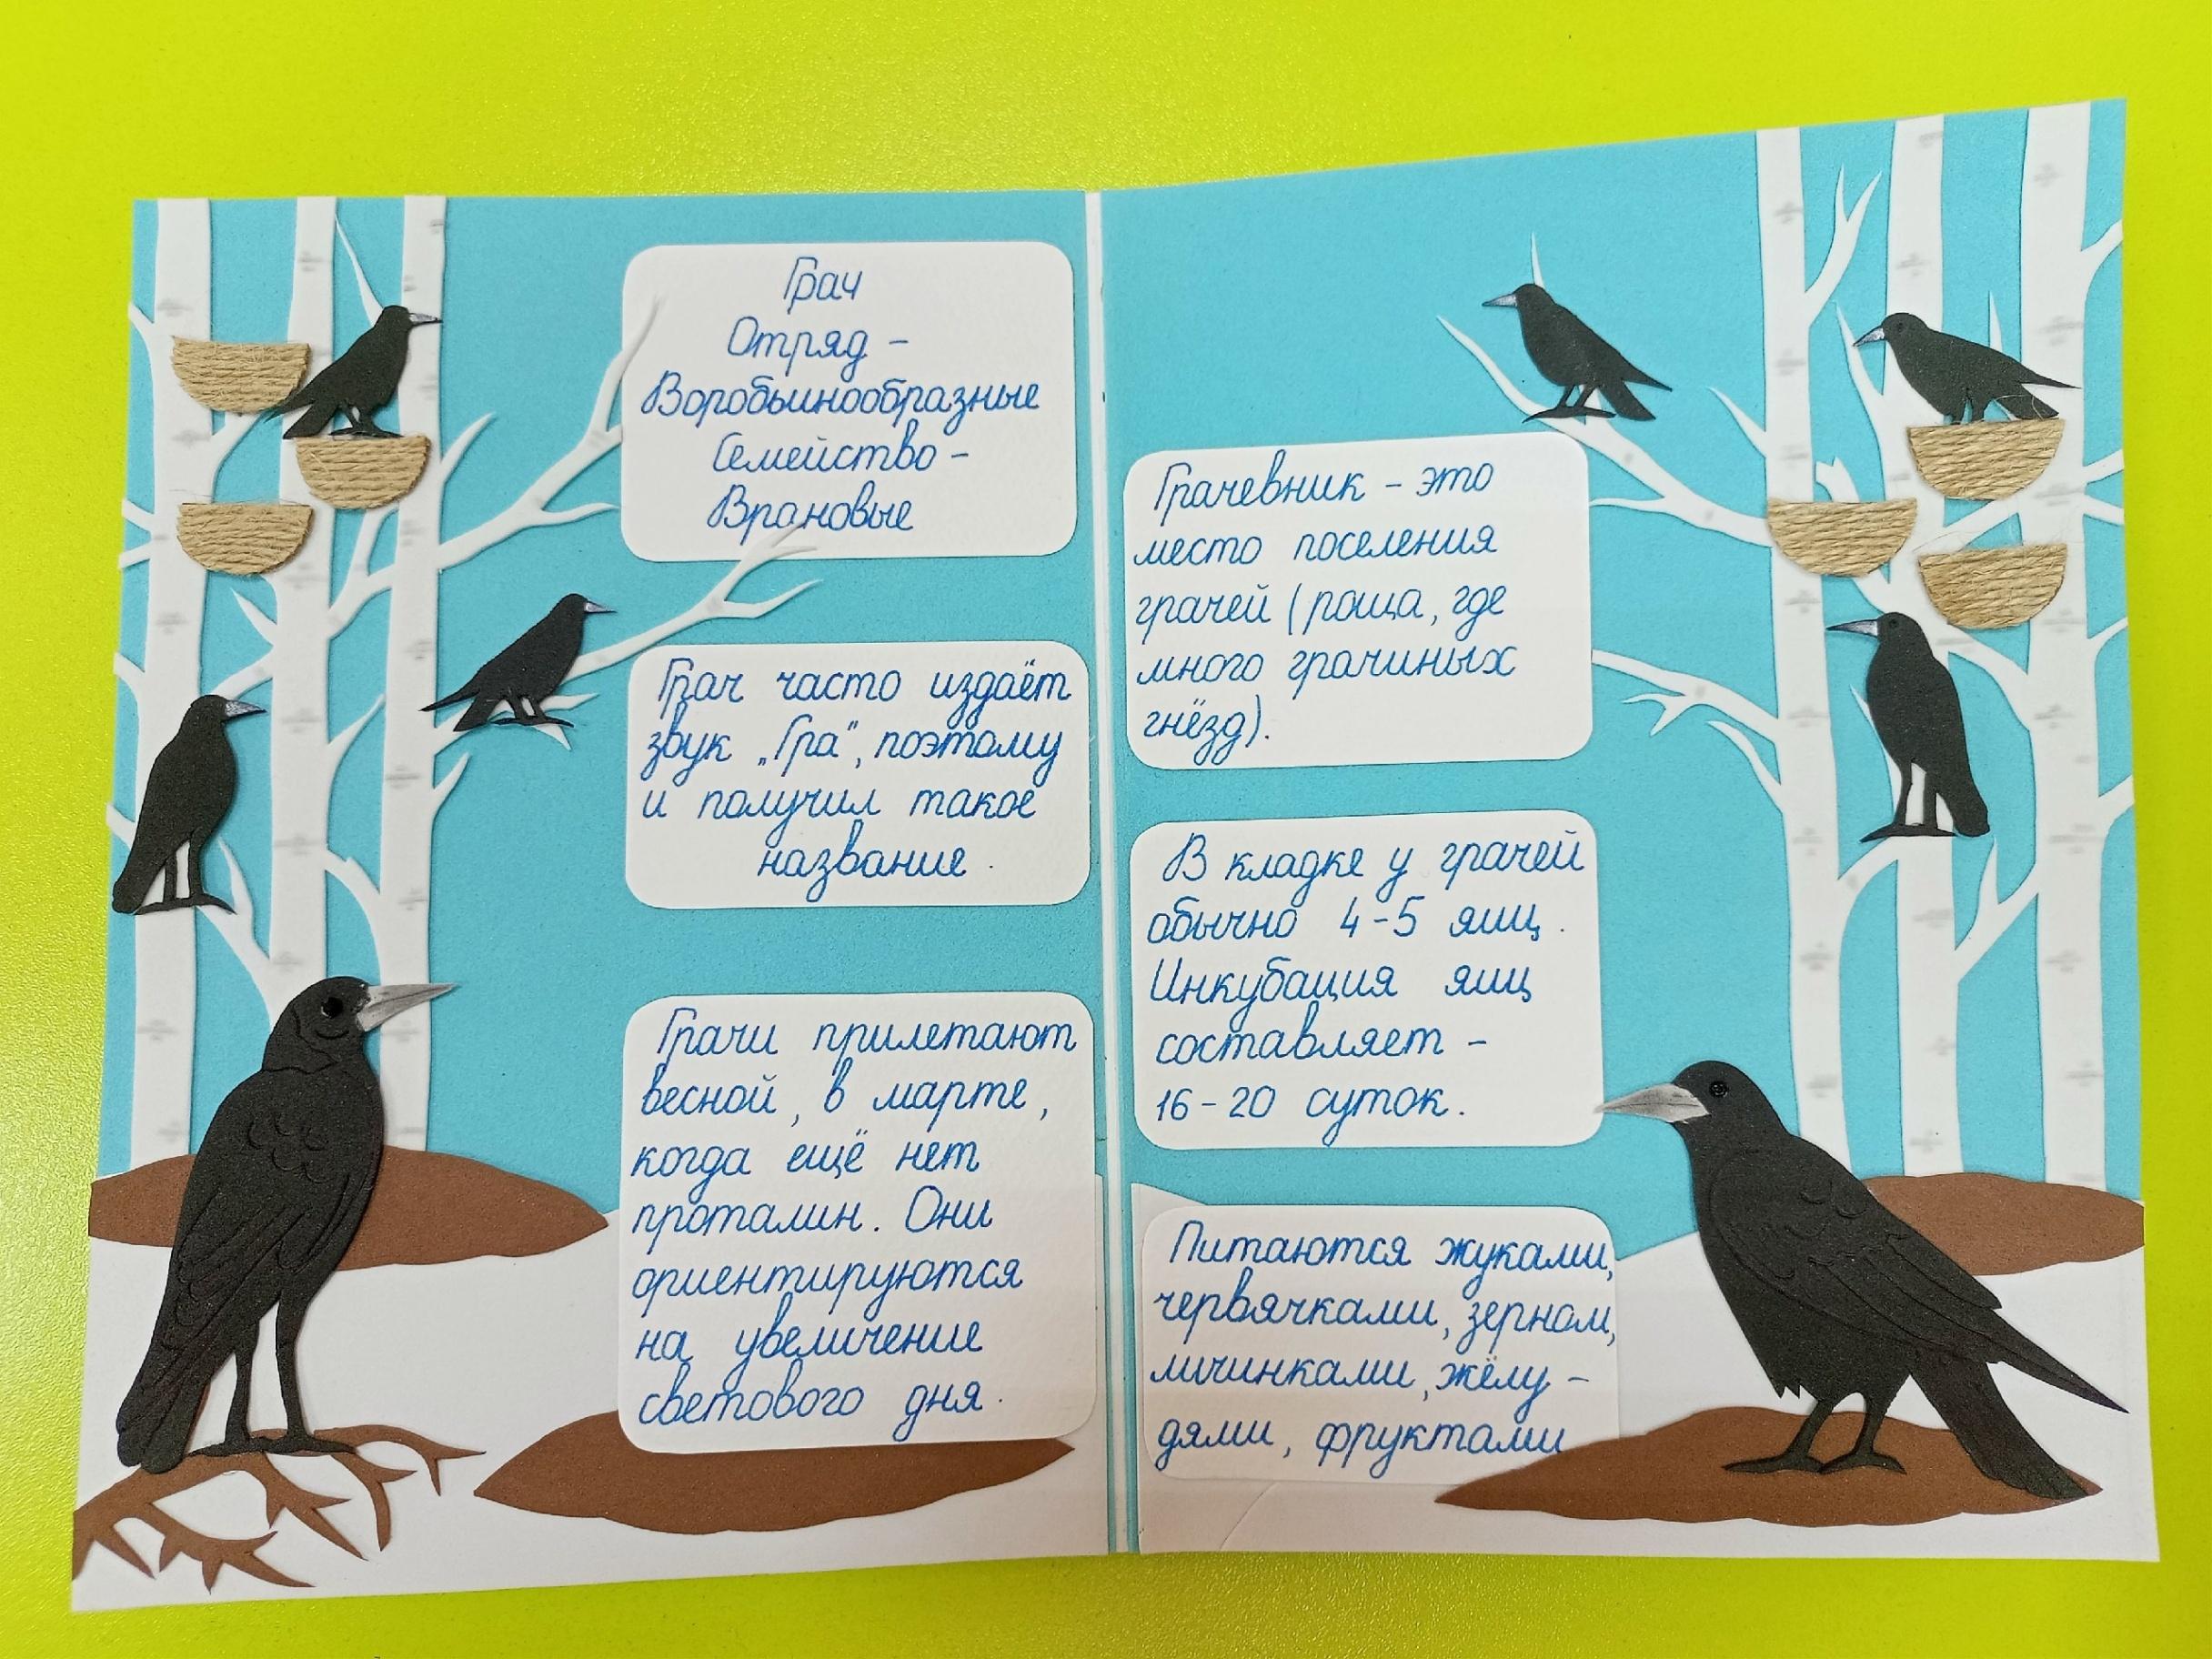 Грач
Отряд -
Воробьинообразные
Семейство -
Врановые
Грач часто издаёт
звук „Гра“, поэтому
и получил такое
название.
Грачи прилетают
весной, в марте,
когда ещё нет
проталин. Они
ориентируются
на увеличение
светового дня.
Грачевник - это
место поселения
грачей (роща, где
много грачиных
гнёзд).
В кладке у грачей
обычно 4-5 яиц.
Инкубация яиц
составляет -
16-20 суток.
Питаются жуками,
червячками, зерном,
личинками, жёлу-
дями, фруктами